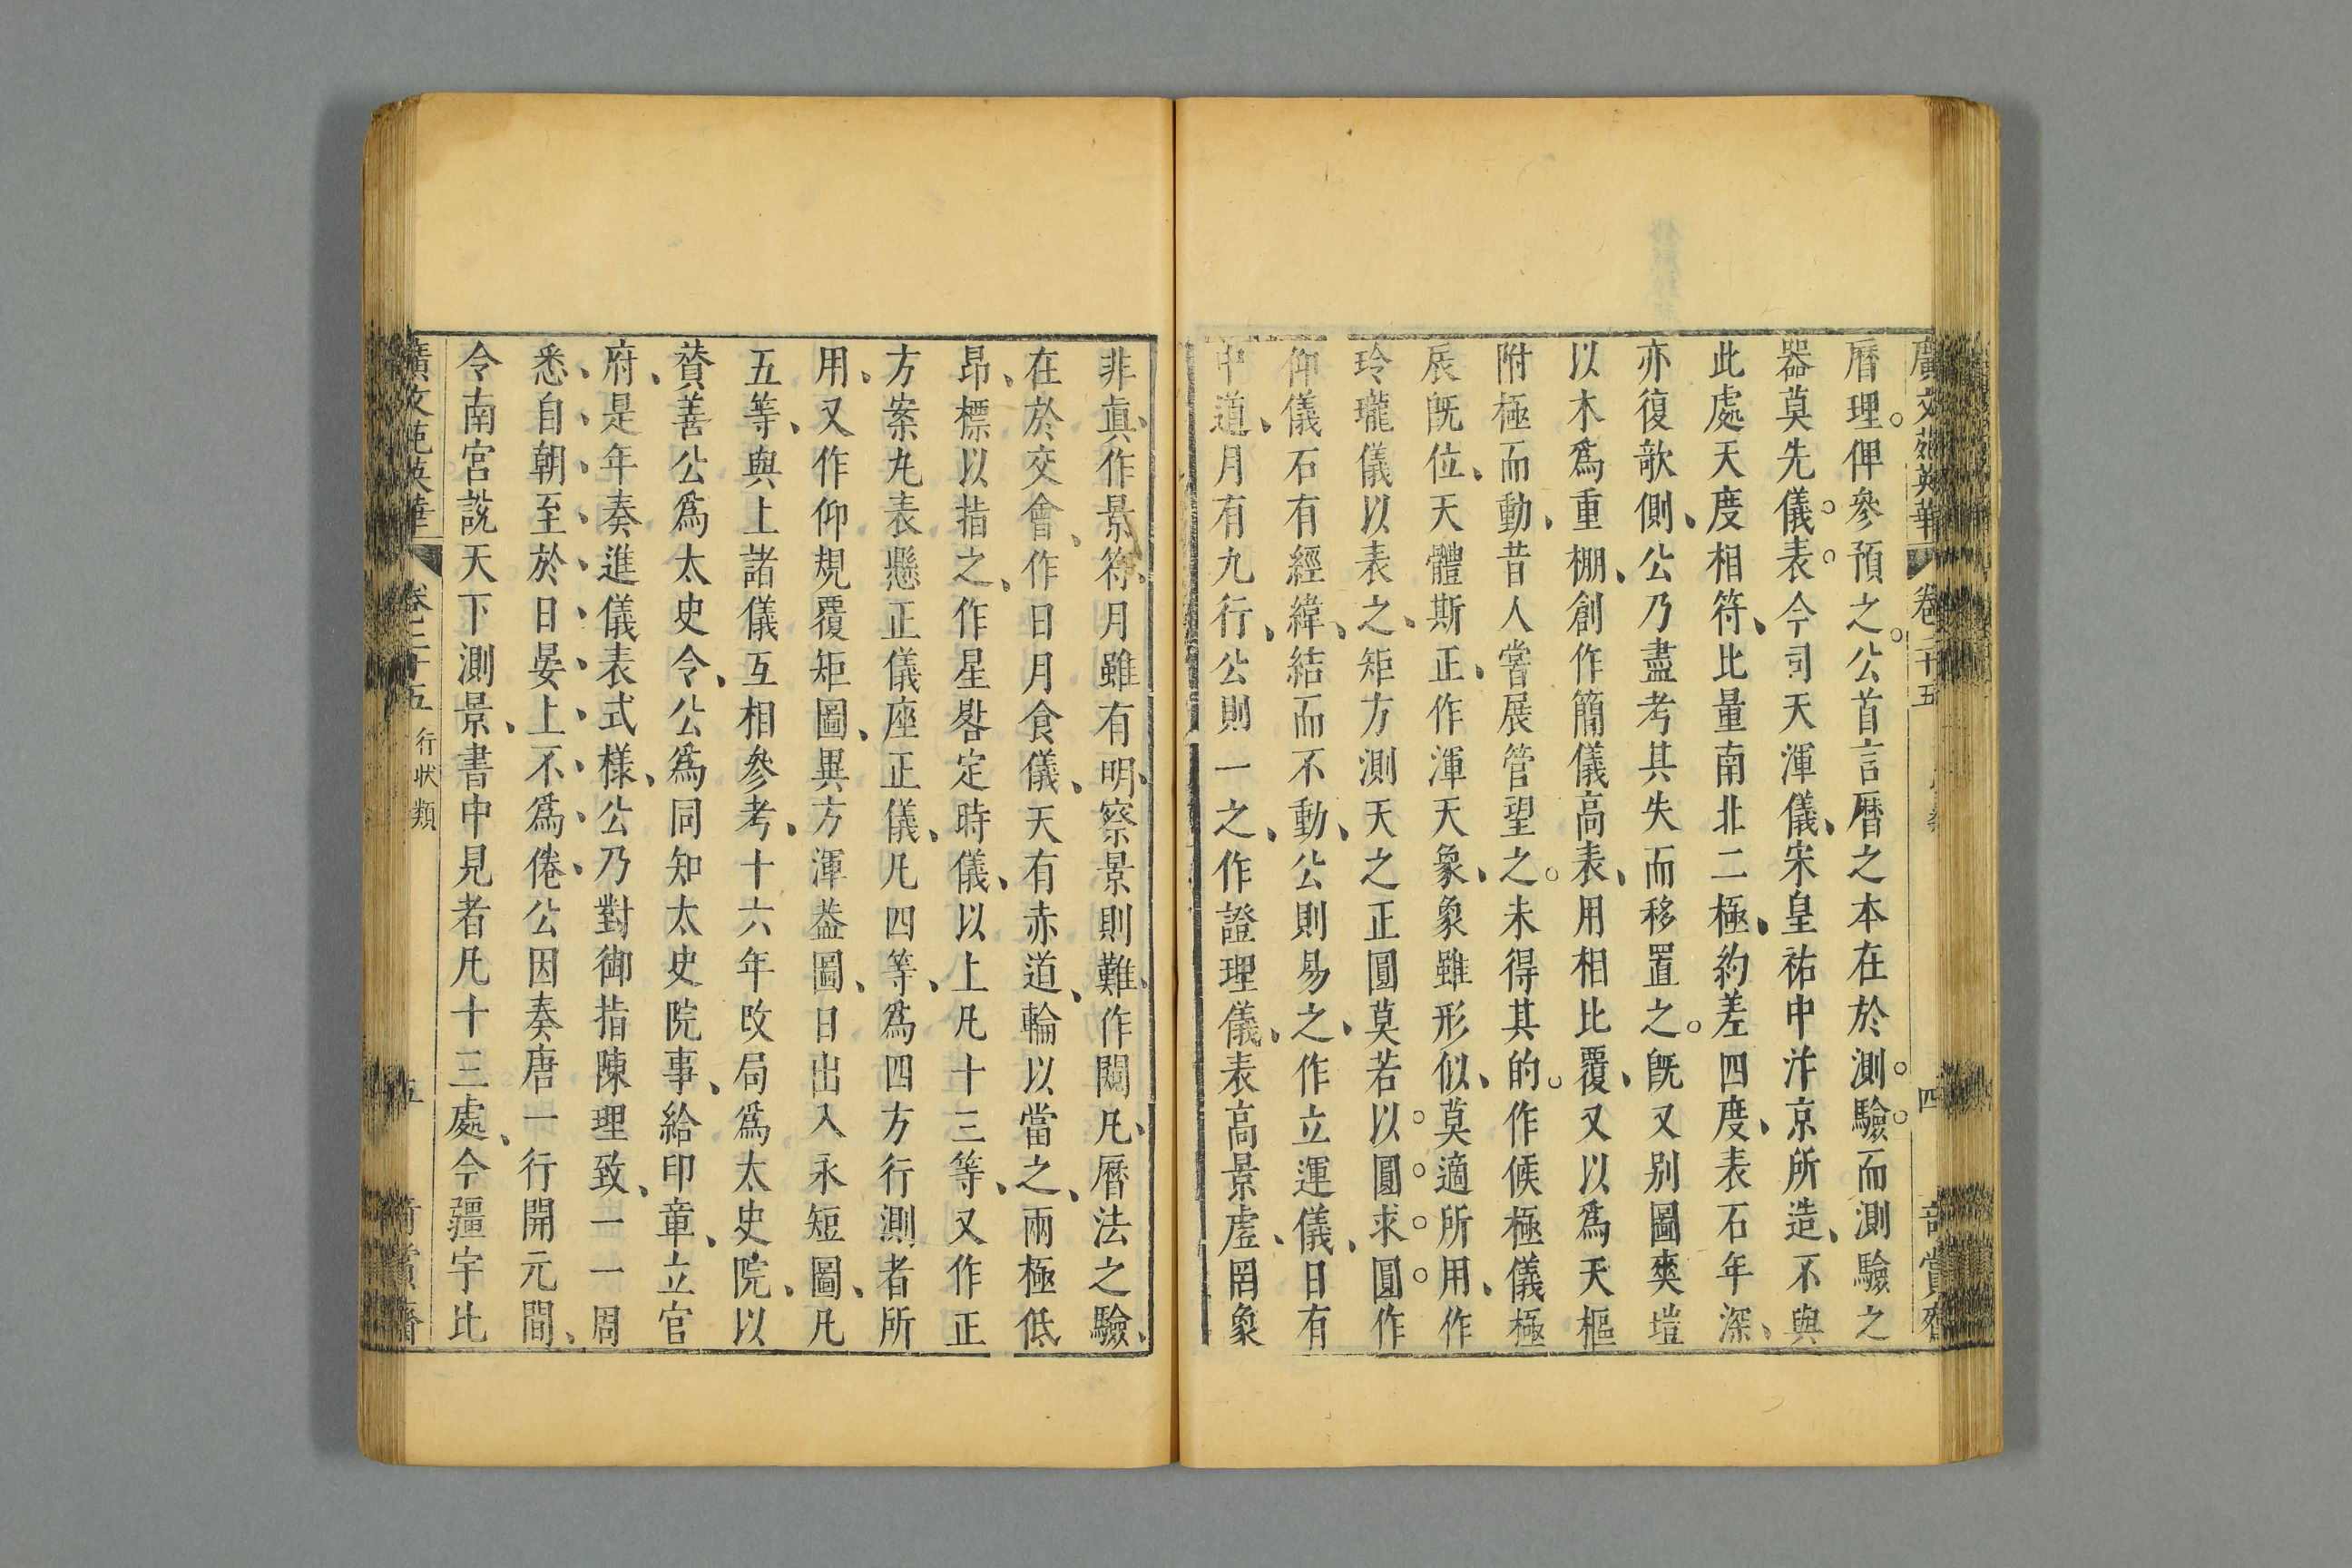 廣文苑英華 卷二十五 四
曆理。俾參預之。公首言曆之本在於測。驗。而測驗之
器莫先儀。表。今司天渾儀、宋皇祐中汴京所造、不與
此處天度相符、比量南北二極、約差四度、表石年深、
亦復欹側、公乃盡考其失而移置之。旣又別圖爽塏
以木爲重棚、創作簡儀高表、用相比覆、又以爲天樞
附極而動、昔人嘗展管望之。未得其的。作候極儀極
辰旣位、天體斯正、作渾天象、象雖形似、莫適所用、作
玲瓏儀以表之、矩方測天之正圓莫若以。圓。求。圓。作
仰儀石有經緯、結而不動、公則易之、作立運儀、日有
中道、月有九行、公則一之、作證理儀、表高景虛、罔象
非眞、作景符、月雖有明、察景則難、作闚凡、曆法之驗、
在於交會、作日月食儀、天有赤道、輪以當之、兩極低
昂、標以指之、作星晷定時儀、以上凡十三等、又作正
方案九表懸正儀座正儀、凡四等、爲四方行測者所
用、又作仰規覆矩圖、異方渾葢圖、日出入永短圖、凡
五等、與上諸儀互相參考、十六年改局爲太史院、以
贊善公爲太史令、公爲同知太史院事、給印章、立官
府、是年奏進儀表式樣、公乃對御指陳理致、一一周
悉、自朝至於日晏、上不爲倦、公因奏唐一行開元間、
令南宮說天下測景、書中見者凡十三處、今疆宇比
廣文苑英華 卷二十五 行狀類 五